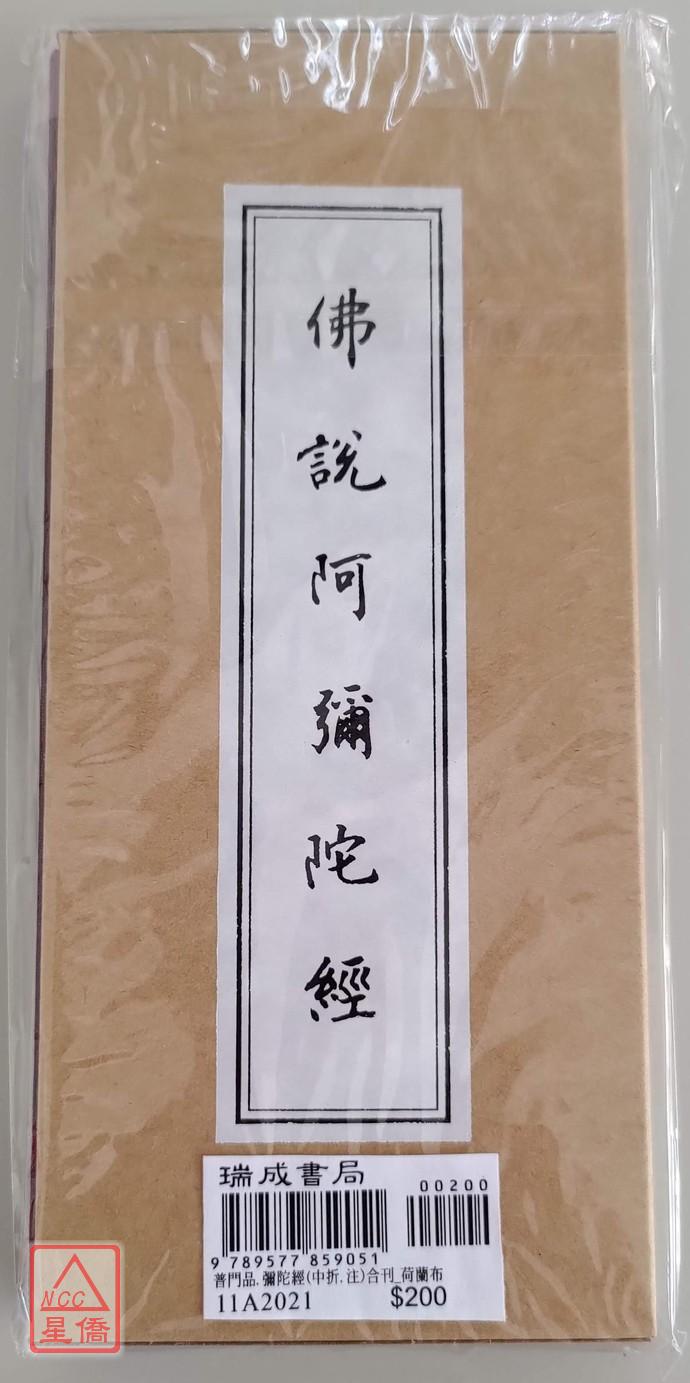 佛說阿彌陀經
瑞成書局
00200
9 789577 859051
普門品.彌陀經(中折.注)合刊_荷蘭布
11A2021 $200
NCC
星僑